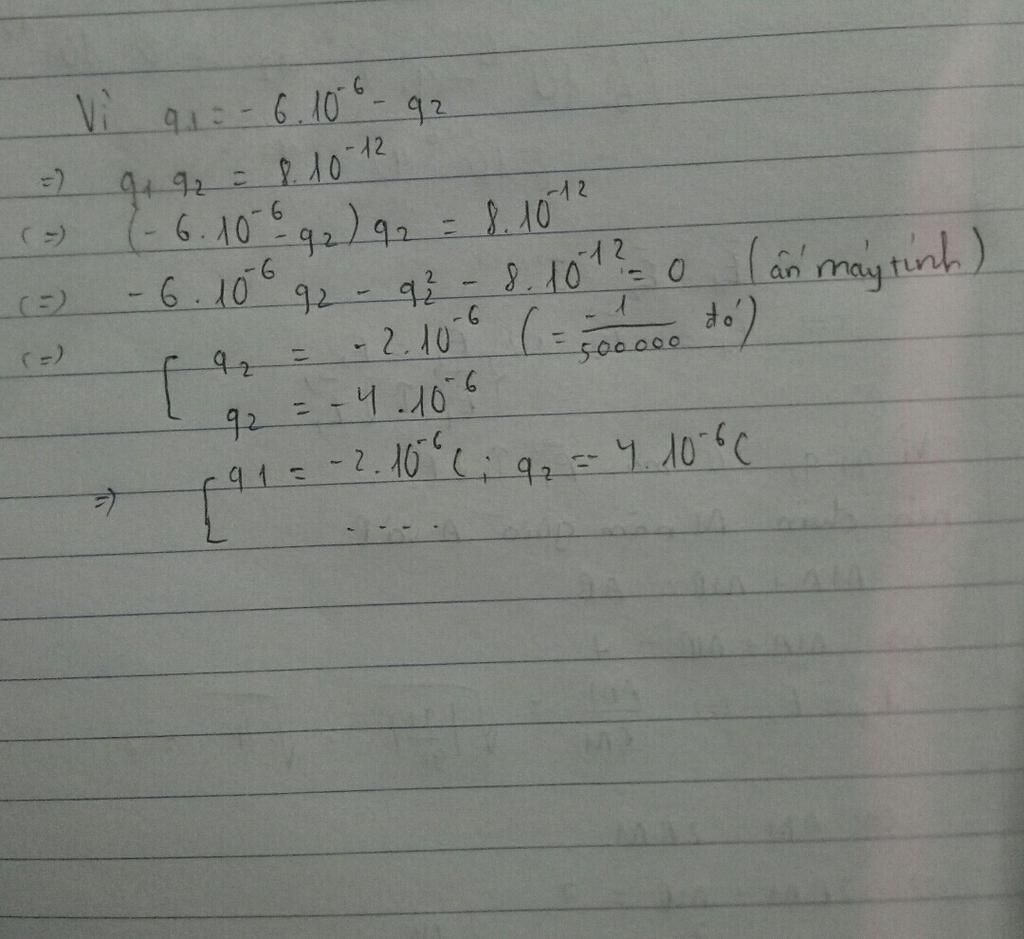 Vì q1 = - 6.10⁻⁶ - q2
=) q1 q2 = 8.10⁻¹²
(=) (- 6.10⁻⁶ - q2) q2 = 8.10⁻¹²
(=) - 6.10⁻⁶ q2 - q2² - 8.10⁻¹² = 0 (ấn máy tính)
(=) [ q2 = - 2.10⁻⁶ (= -1/500000 đó)
q2 = - 4.10⁻⁶
=) [ q1 = - 2.10⁻⁶ C ; q2 = - 4.10⁻⁶ C
....